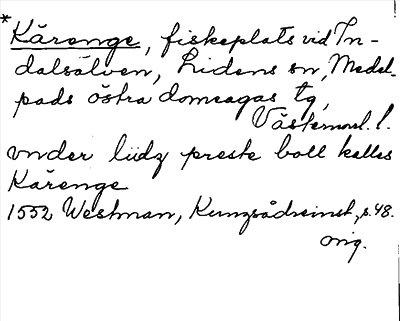 *Kärenge, fiskeplats vid In-
dalsälven, Lidens sn, Medel-
pads östra domsagas tg,
Västernorrl. l.
vnder liidz preste boll kalles
Kärenge
1552 Westman, Kungsådreinst, s. 48.
orig.